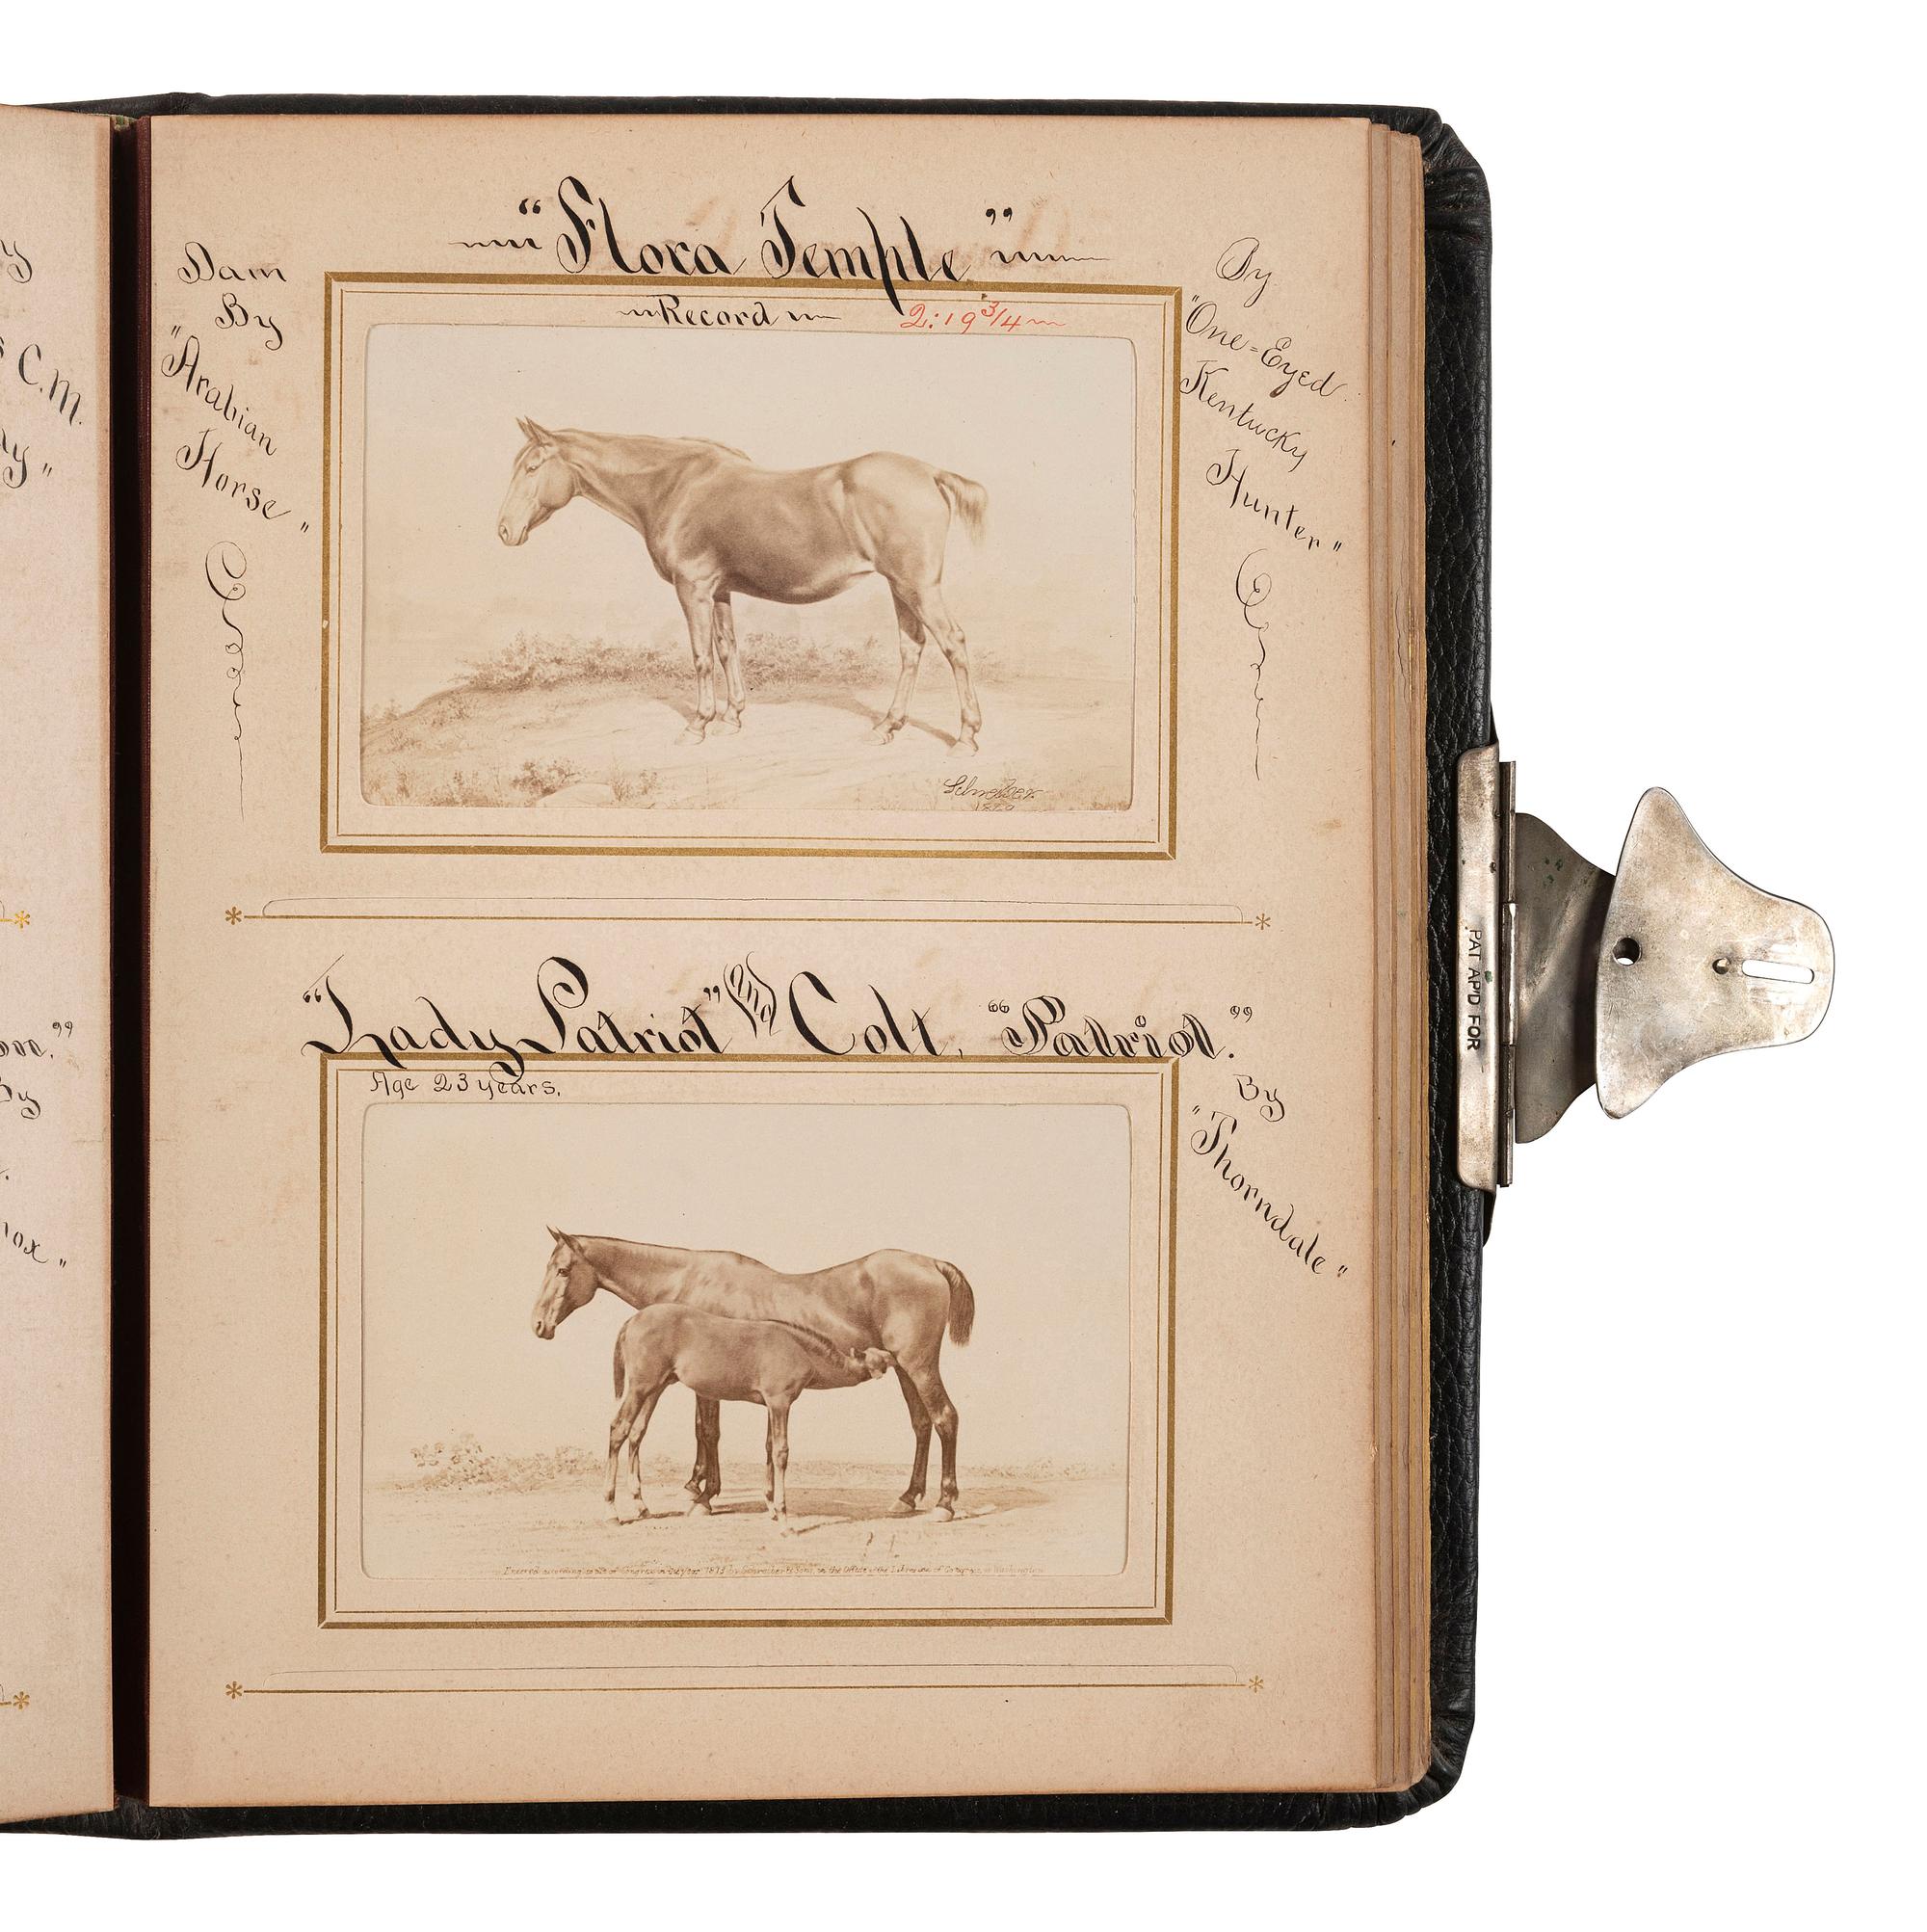 “Flora Temple”
Record 2:19 3/4
Dam
By
"Arabian
Horse"
By
"One=Eyed
Kentucky
Hunter"
Schreiber
“Lady Patriot” and Colt, “Patriot.”
Age 23 years.
By
"Thorndale"
Entered according to Act of Congress in the year 1873 by Schreiber & Sons, in the Office of the Librarian of Congress, at Washington
PAT AP'D FOR
C.M.
By